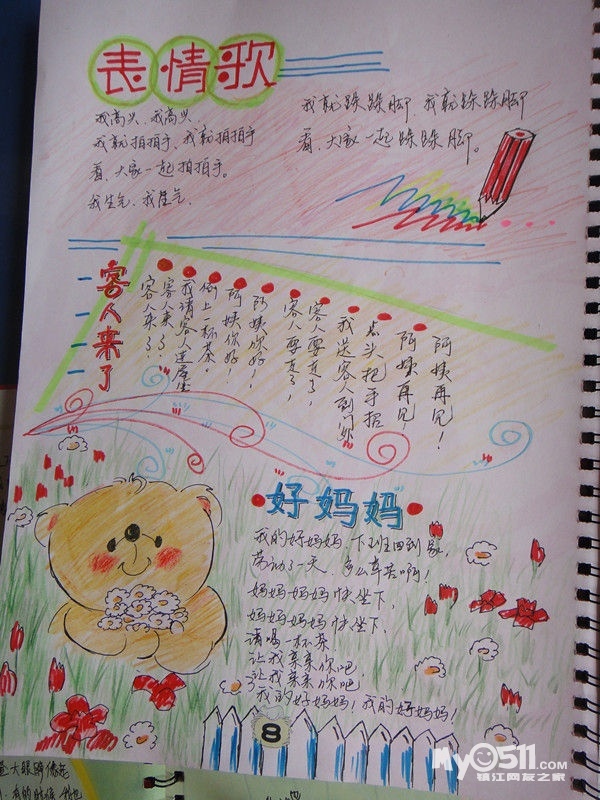 表情歌
我高兴、我高兴、
我就拍拍手、我就拍拍手
看、大家一起拍拍手。
我生气、我生气、
我就跺跺脚 我就跺跺脚
看、大家一起跺跺脚。
客人来了
客人来了,
客人来了,
我请客人进屋坐
倒上一杯茶。
阿姨你好!
阿姨你好,
客人要走了,
客人要走了,
我送客人到门外
点头把手招
阿姨再见!
阿姨再见!
好妈妈
我的好妈妈、下班回到家,
劳动了一天、多么辛苦啊!
妈妈妈妈快坐下,
妈妈妈妈快坐下,
请喝一杯茶
让我亲亲你吧
让我亲亲你吧
我的好妈妈!我的好妈妈!
8
My0511.com
镇江网友之家